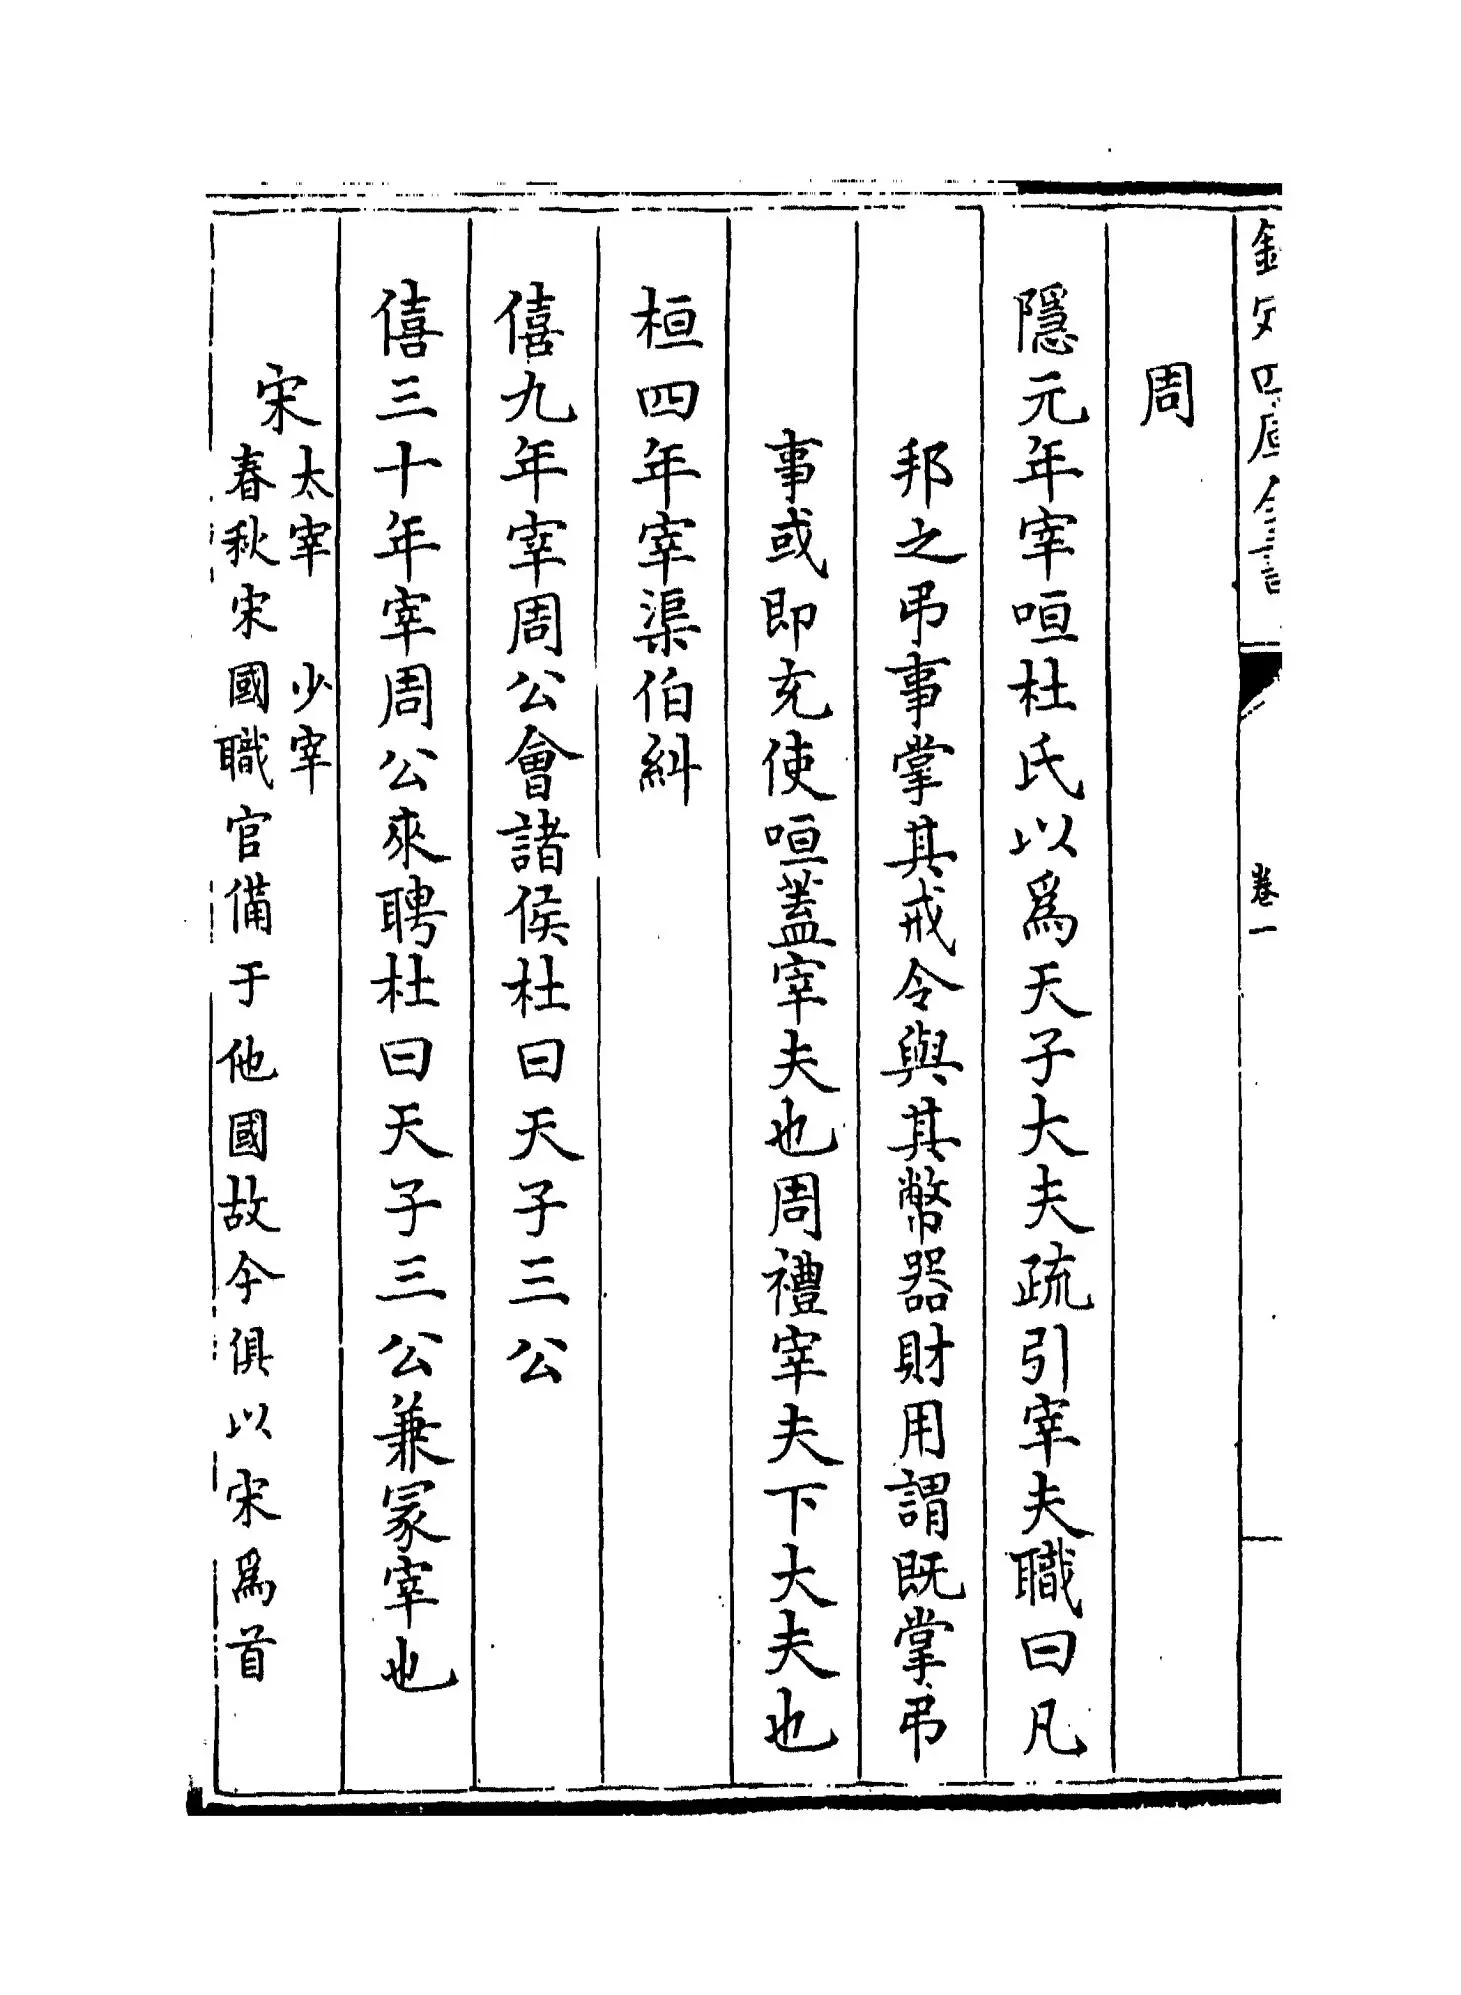 欽定四庫全書
卷一
周
隱元年宰咺杜氏以爲天子大夫疏引宰夫職曰凡
邦之弔事掌其戒令與其幣器財用謂既掌弔
事或即充使咺蓋宰夫也周禮宰夫下大夫也
桓四年宰渠伯糾
僖九年宰周公會諸侯杜曰天子三公
僖三十年宰周公來聘杜曰天子三公兼冡宰也
宋
太宰 少宰
春秋宋國職官備于他國故今俱以宋爲首